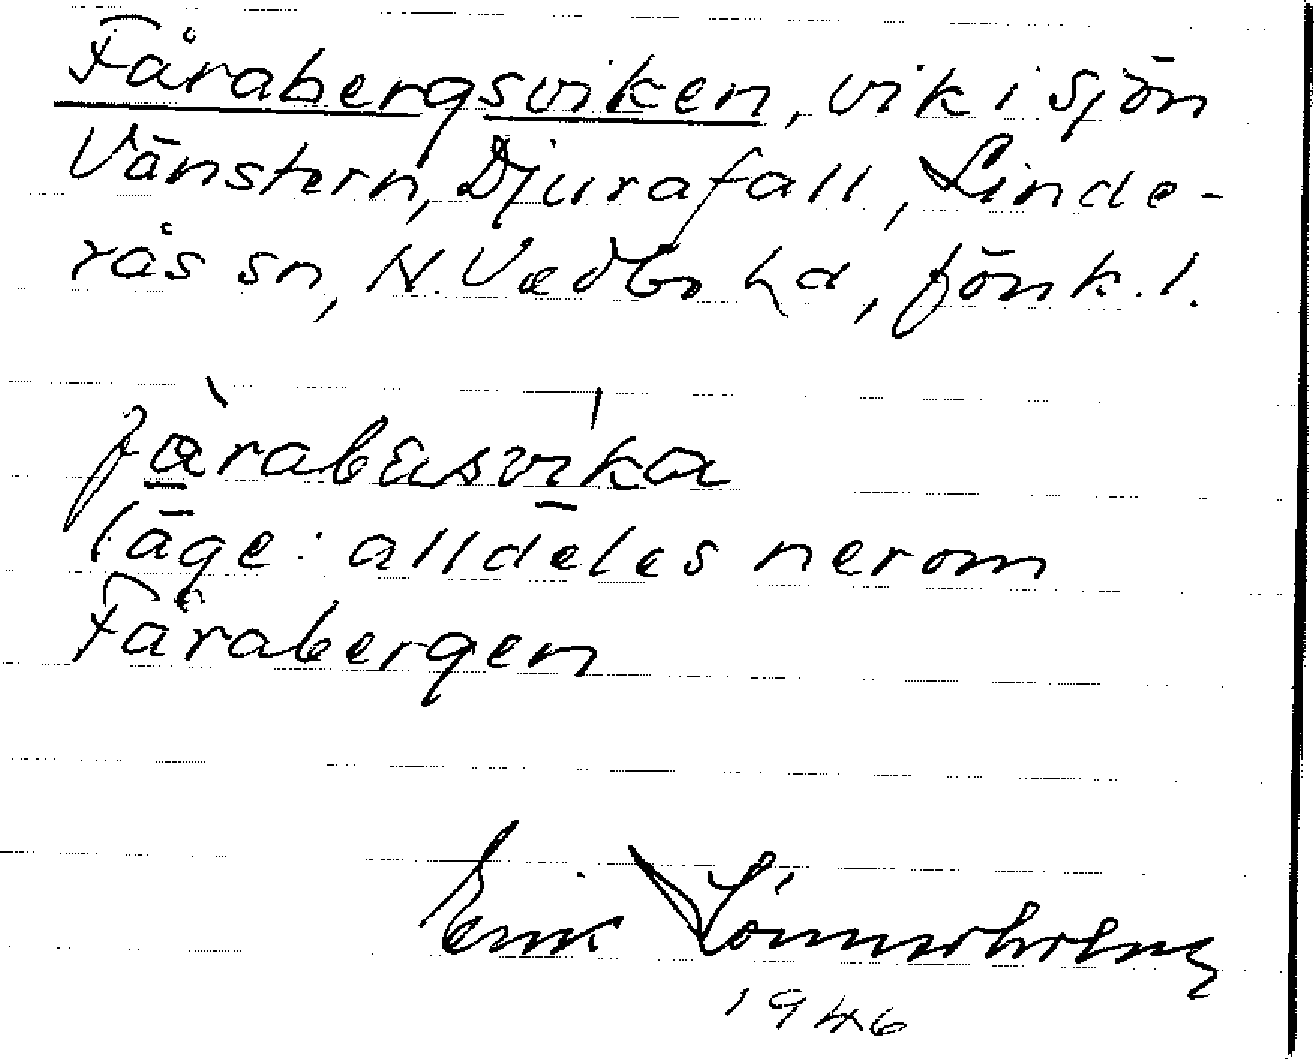 Fårabergsviken, vik i sjön
Vänstern, Djurafall, Linde-
rås sn, N. Vedbo hd, Jönk. l.
fàrabæsvika
läge: alldeles nerom
Fårabergen
Erik Lönnerholm
1946